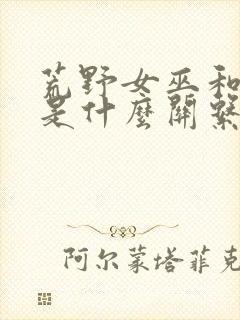 荒野女巫和
是什麼關繫
阿尔蒙塔菲克